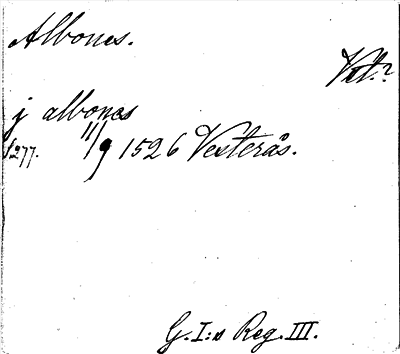 Albones.
Vet.?
j albones
s277. 11/9 1526 Vesterås.
G. I:s Reg. III.